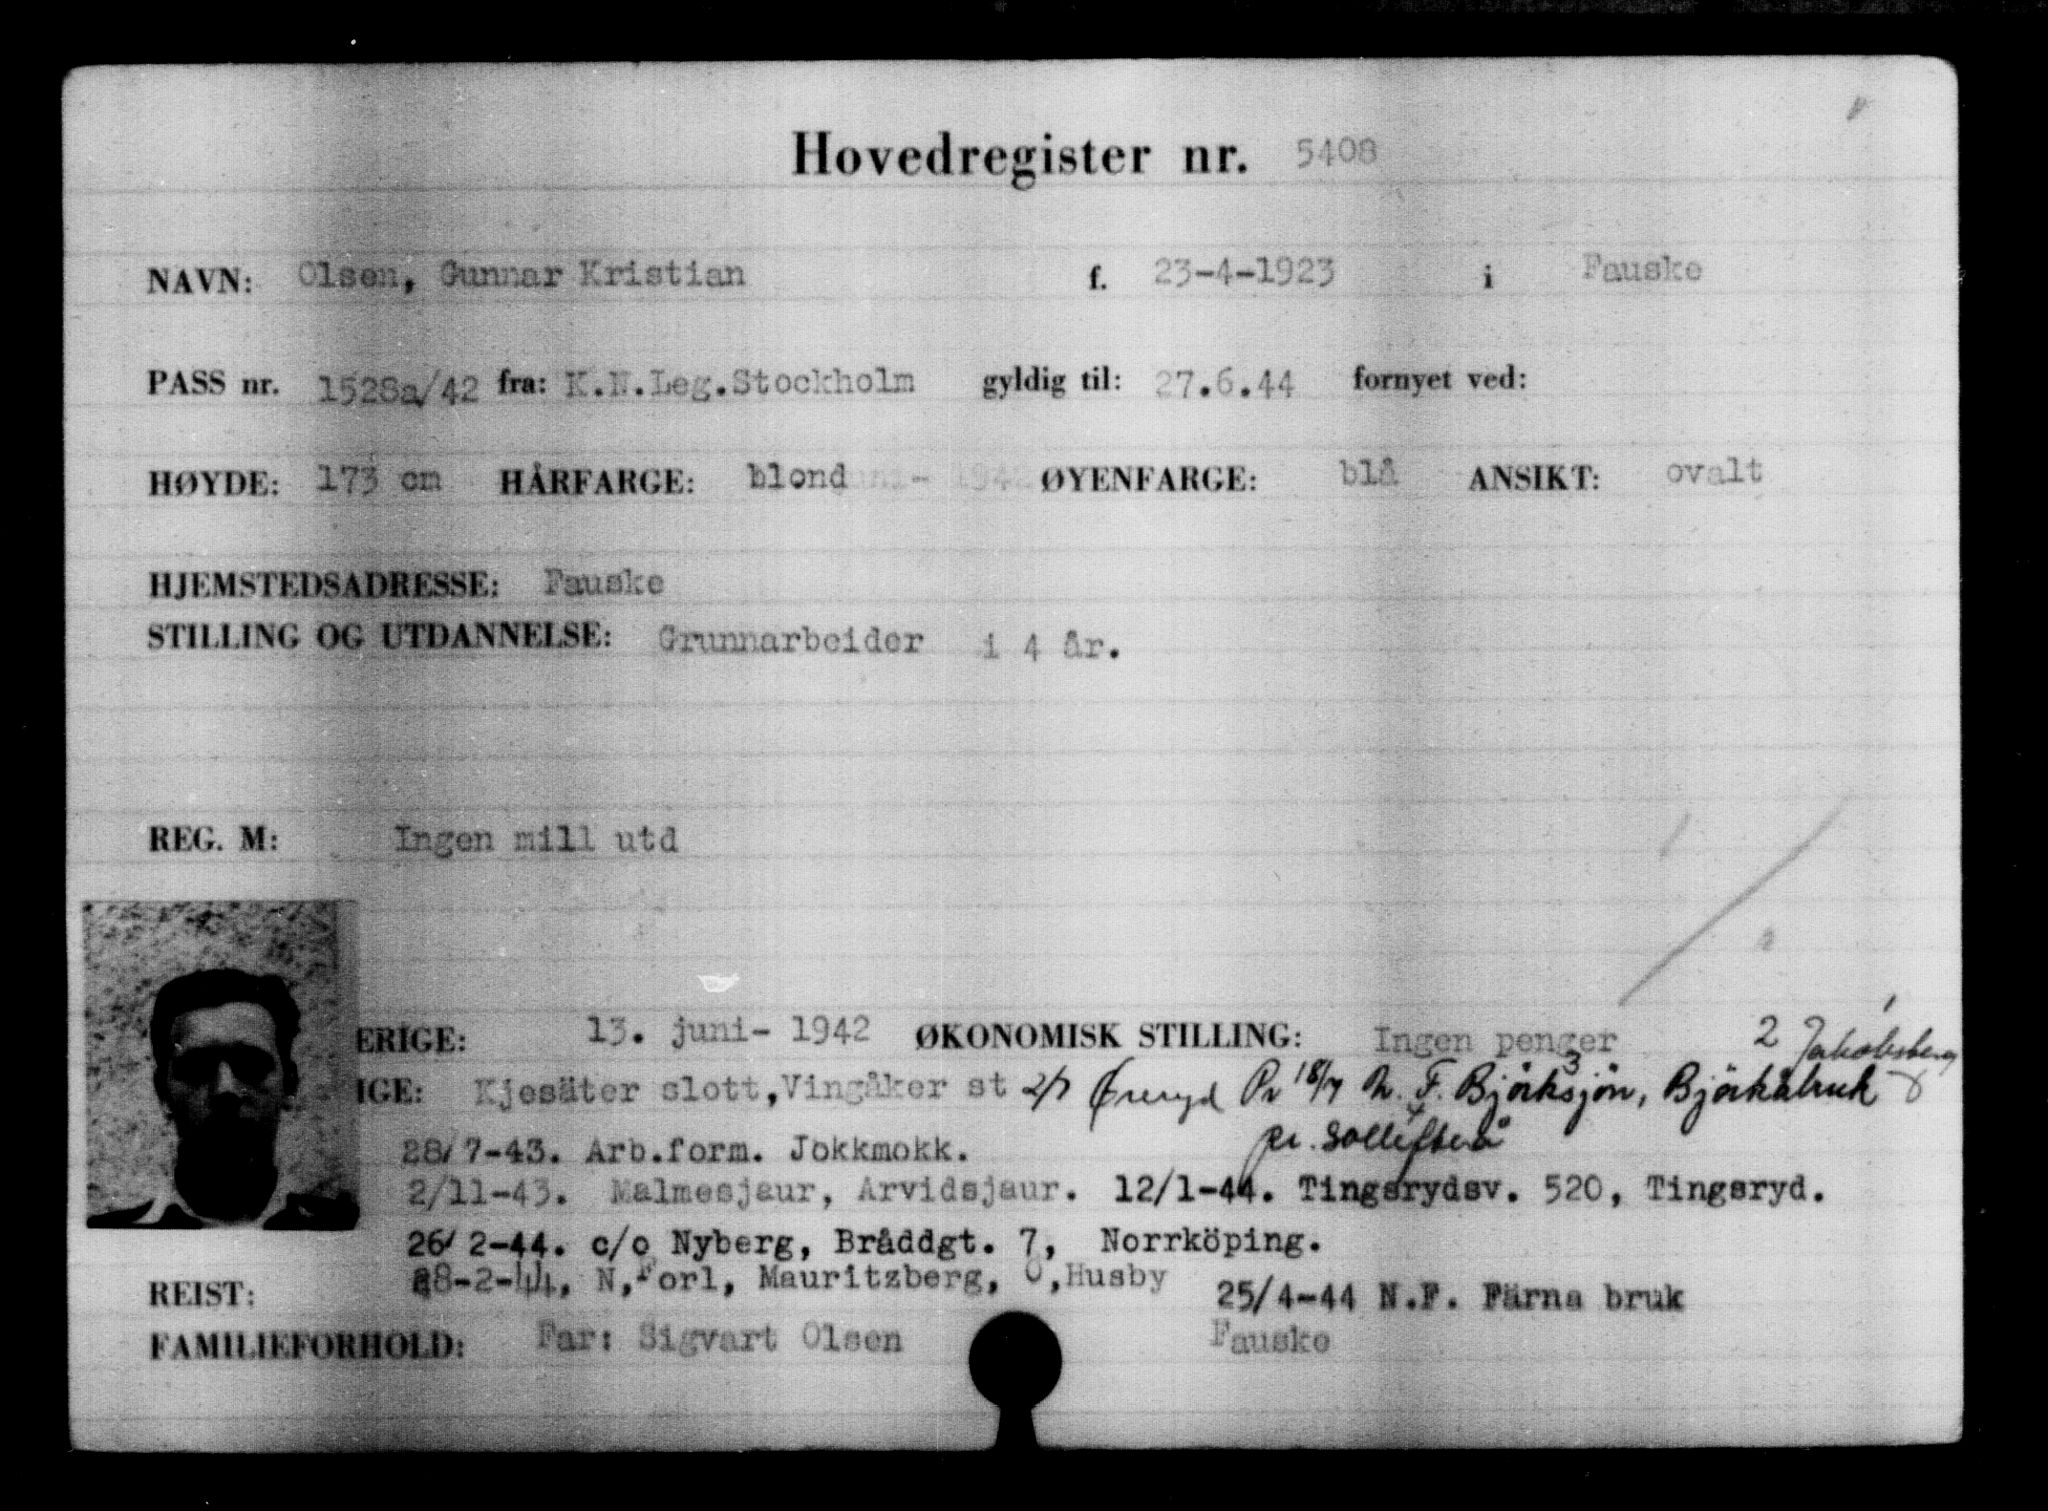 Hovedregister nr. 5408
NAVN: Olsen, Gunnar Kristian f. 23-4-1923 i Fauske
PASS nr. 1528a/42 fra: K.N.Leg.Stockholm gyldig til: 27.6.44 fornyet ved:
HØYDE: 173 cm HÅRFARGE: blond ØYENFARGE: blå ANSIKT: ovalt
HJEMSTEDSADRESSE: Fauske
STILLING OG UTDANNELSE: Grunnarbeider i 4 år.
REG. M: Ingen mill utd
ERIGE: 13. juni- 1942 ØKONOMISK STILLING: Ingen penger 2 Jakobsberg
IGE: Kjesäter slott, Vingåker st 2/7 Øreryd Pr 18/7 N. F. Björksjön, Björkåbruk
pr. Sollefteå
28/7-43. Arb.form. Jokkmokk.
2/11-43. Malmesjaur, Arvidsjaur. 12/1-44. Tingsrydsv. 520, Tingsryd.
26/2-44. c/o Nyberg, Bråddgt. 7, Norrköping.
28-2-44, N,Forl, Mauritzberg, Ö,Husby
REIST: 25/4-44 N.F. Färna bruk
FAMILIEFORHOLD: Far: Sigvart Olsen Fauske